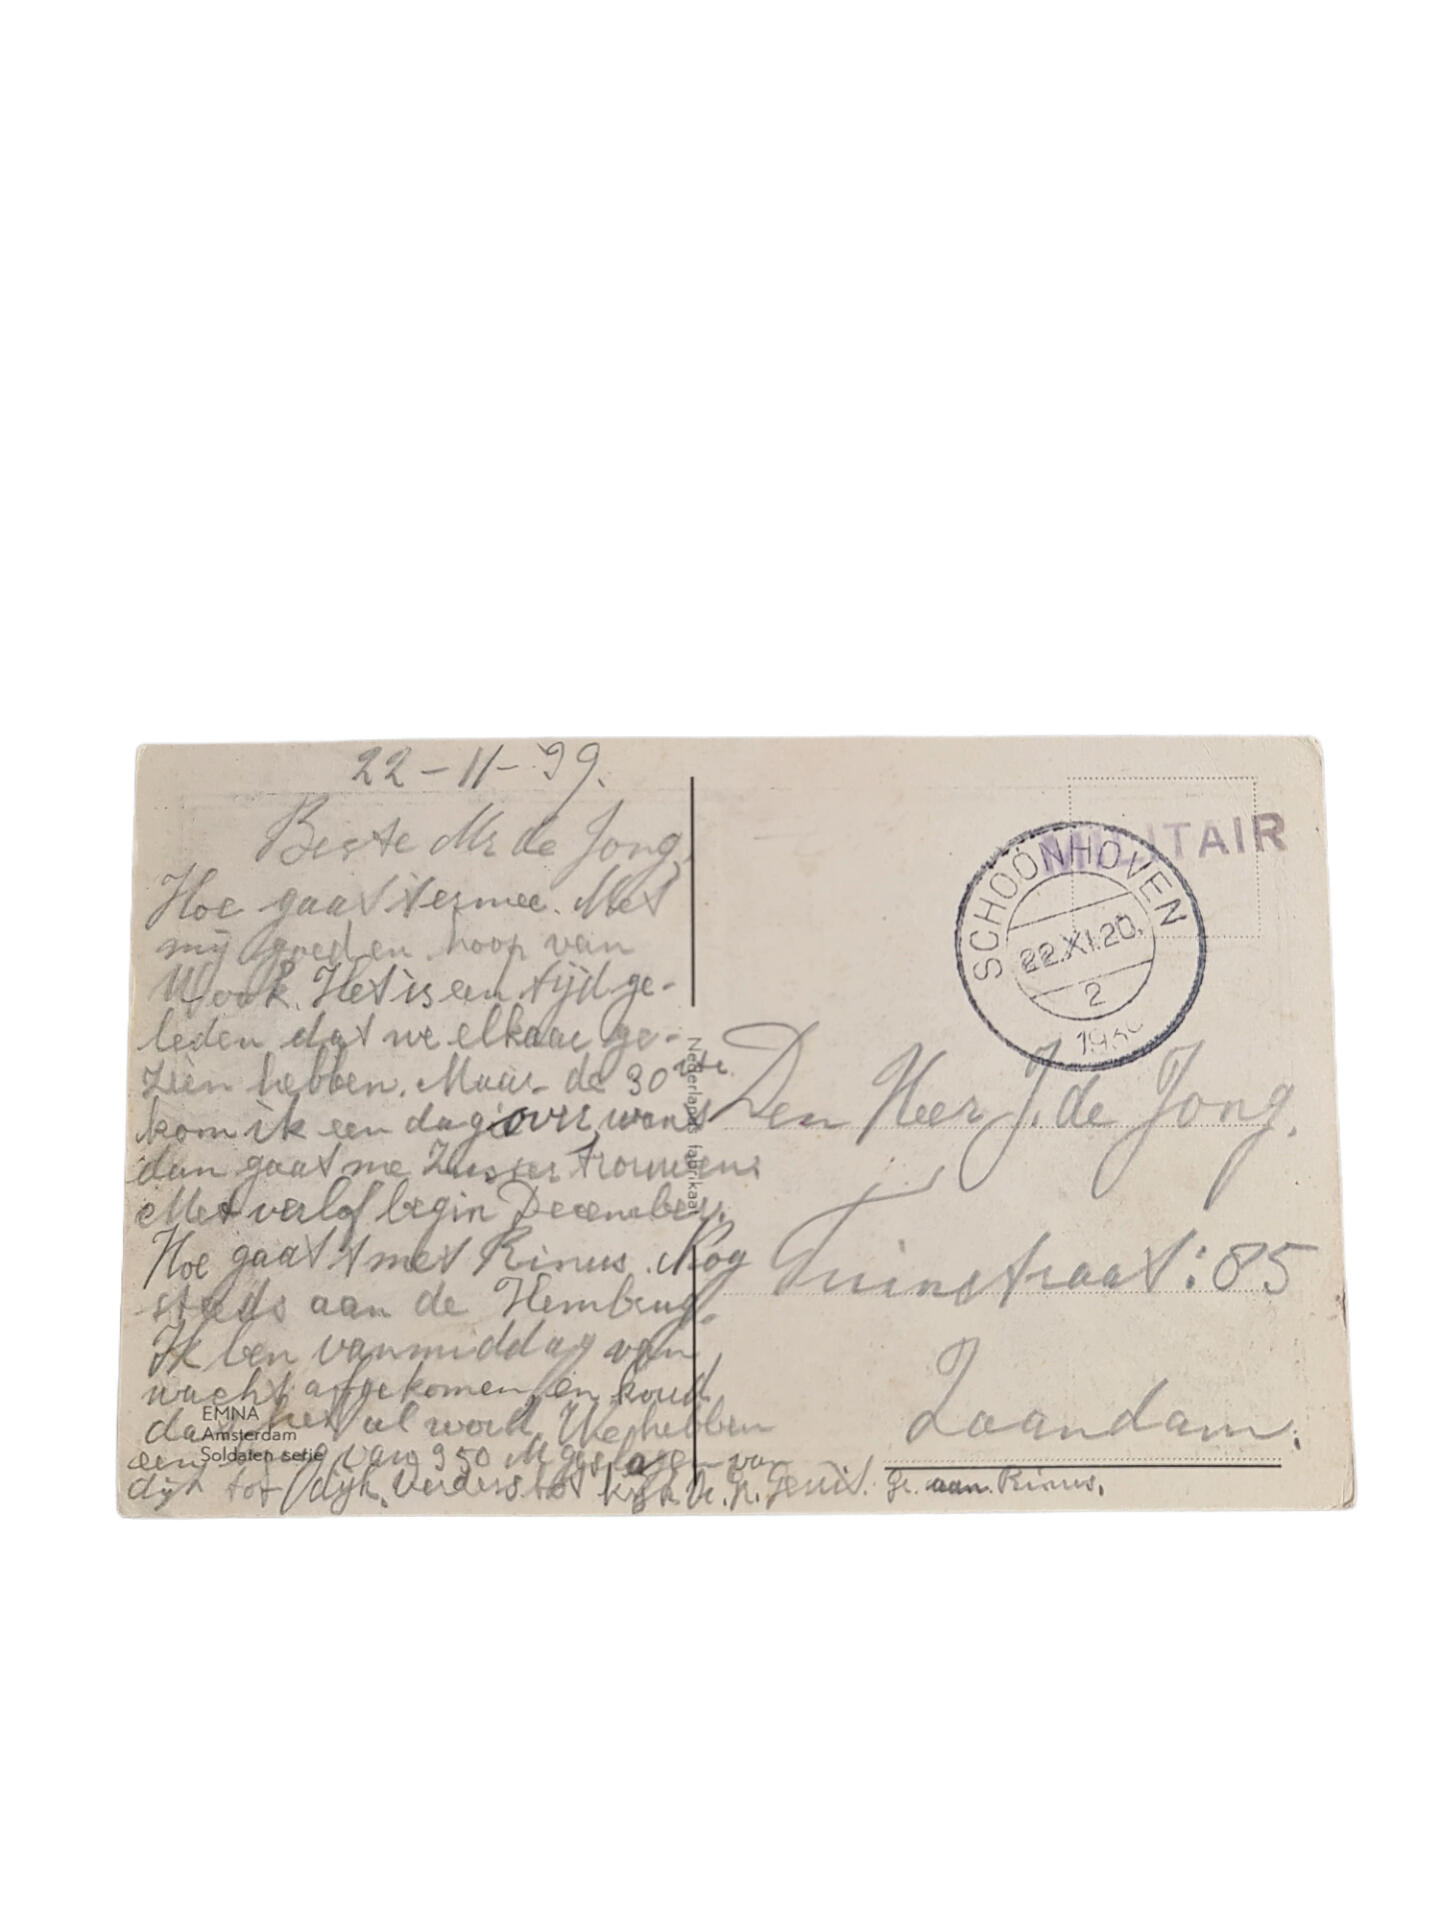 22-11-39.
Beste Mr de Jong,
Hoe gaat 't ermee. Met
mij goed en hoop van
U ook. Het is een tijd ge-
leden dat we elkaar ge-
zien hebben. Maar de 30ste
kom ik een dagje over, want
dan gaat me Zuster trouwen.
Met verlof begin December.
Hoe gaat 't met Rinus. Nog
steeds aan de Hembrug.
Ik ben vanmiddag van
wacht afgekomen, en koud
dat het al word. We hebben
een brug van 350 M geslagen van
dijk tot dijk. Verders tot kijk. Gerrit. Gr. aan Rinus.
EMNA
Amsterdam
Soldaten serie
Nederlands fabrikaat
MILITAIR
SCHOONHOVEN
22.XI.20.
2
193
Den Heer J. de Jong.
Tuinstraat: 85
Zaandam.